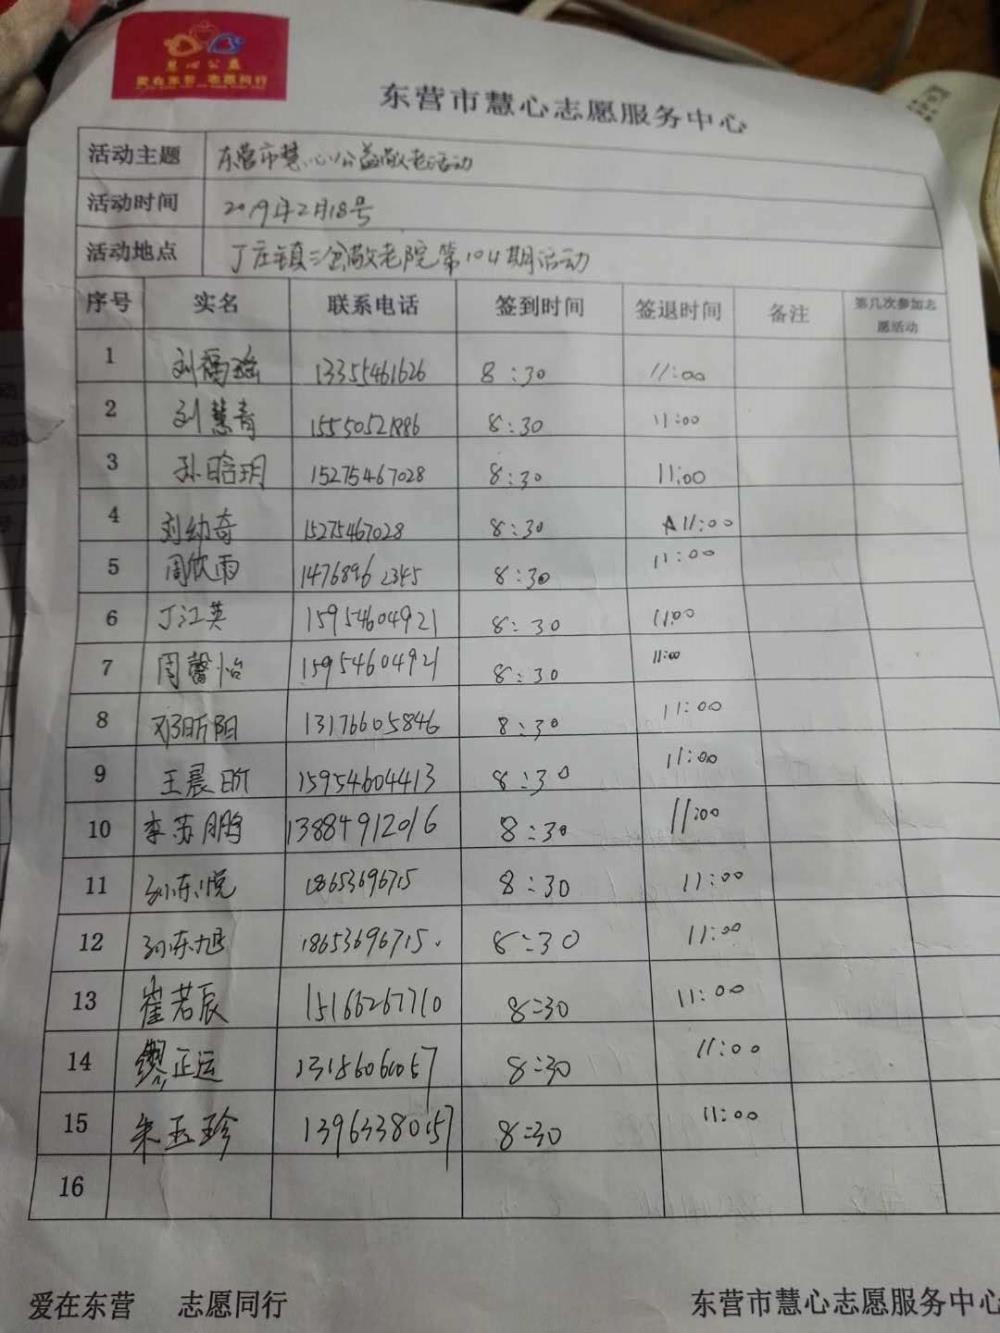 慧心公益
爱在东营 志愿同行
东营市慧心志愿服务中心
活动主题 东营市慧心公益敬老活动
活动时间 2019年2月18号
活动地点 丁庄镇三会敬老院第104期活动
序号 实名 联系电话 签到时间 签退时间 备注 第几次参加志愿活动
1 刘福瑶 13355461626 8:30 11:00
2 刘慧青 15550521886 8:30 11:00
3 孙晗玥 15275467028 8:30 11:00
4 刘幼奇 15275467028 8:30 11:00
5 周欣雨 14768962345 8:30 11:00
6 丁江英 15954604921 8:30 11:00
7 周馨怡 15954604921 8:30 11:00
8 邓昕阳 13176605846 8:30 11:00
9 王晨昕 15954604413 8:30 11:00
10 李苏鹏 13884912016 8:30 11:00
11 孙东悦 18653696715 8:30 11:00
12 孙东旭 18653696715. 8:30 11:00
13 崔若辰 15166267710 8:30 11:00
14 缪正运 8:30 11:00
15 朱玉珍 13963380157 8:30 11:00
16
爱在东营 志愿同行 东营市慧心志愿服务中心